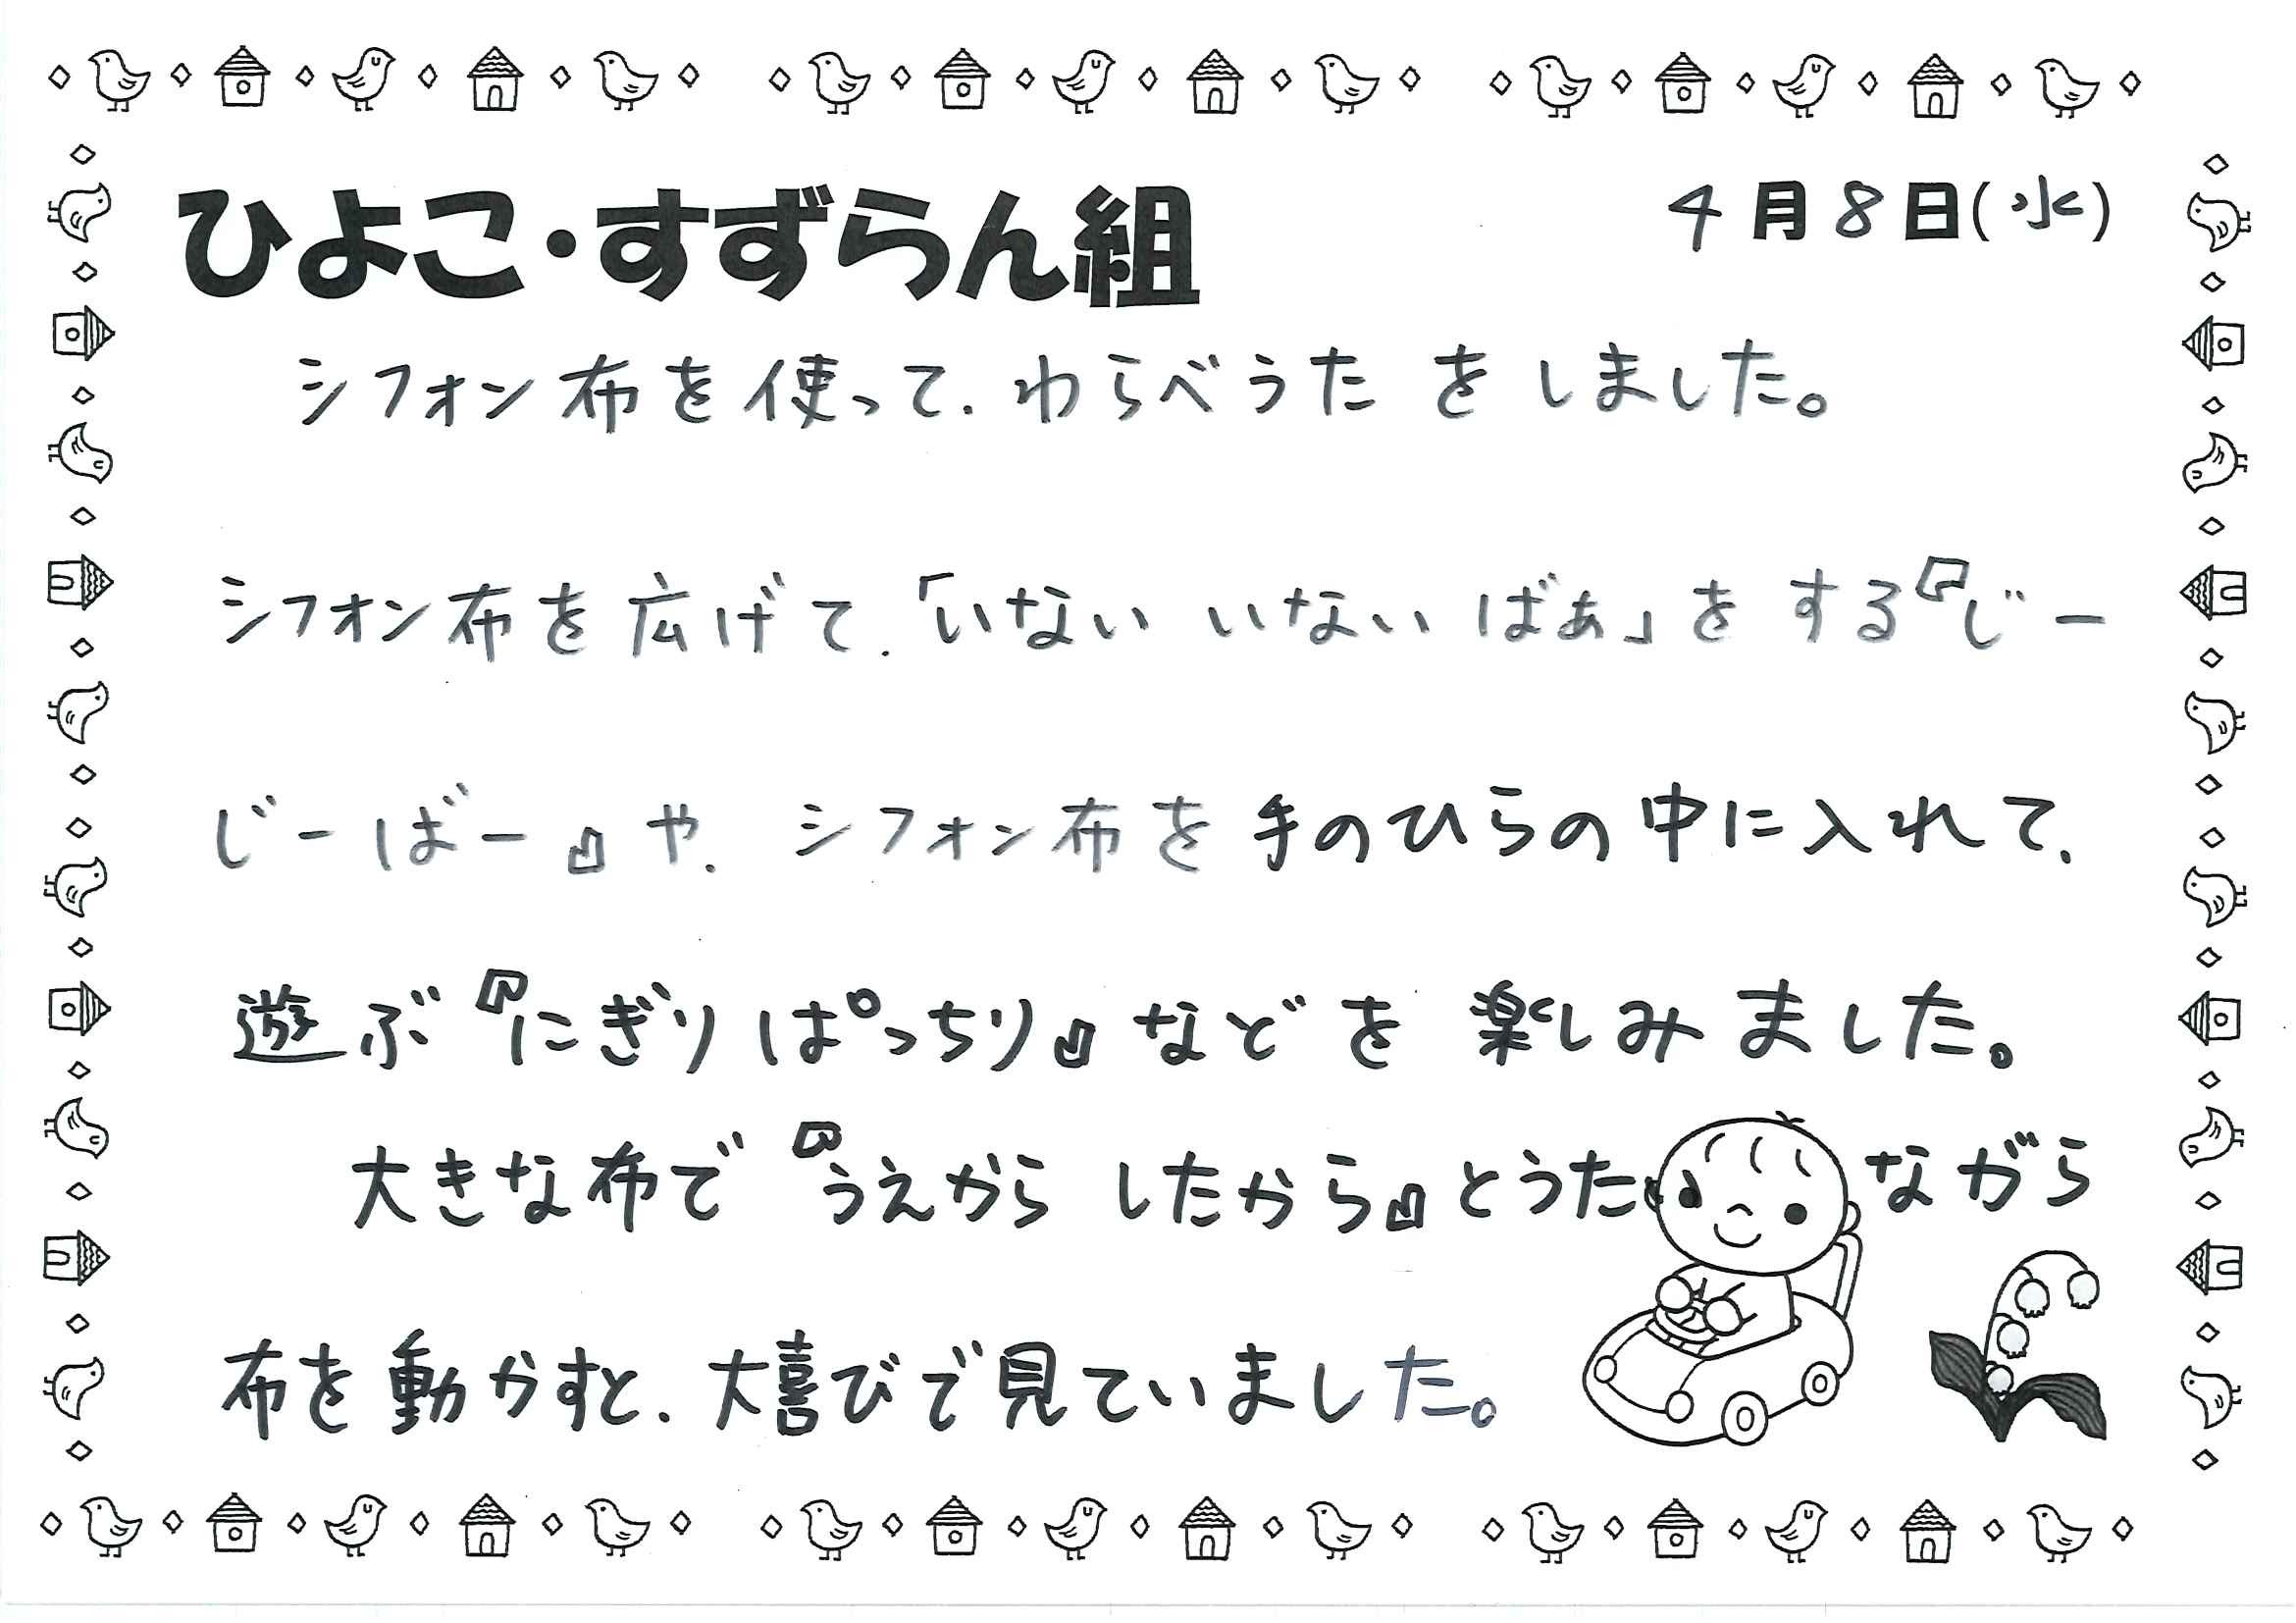 ひよこ・すずらん組
4月8日(水)
シフォン布を使って、わらべうたをしました。
シフォン布を広げて、「いないいないばぁ」をする『じー
じーばー』や、シフォン布を手のひらの中に入れて、
遊ぶ『にぎりぱっちり』などを楽しみました。
大きな布で『うえからしたから』とうたいながら
布を動かすと、大喜びで見ていました。